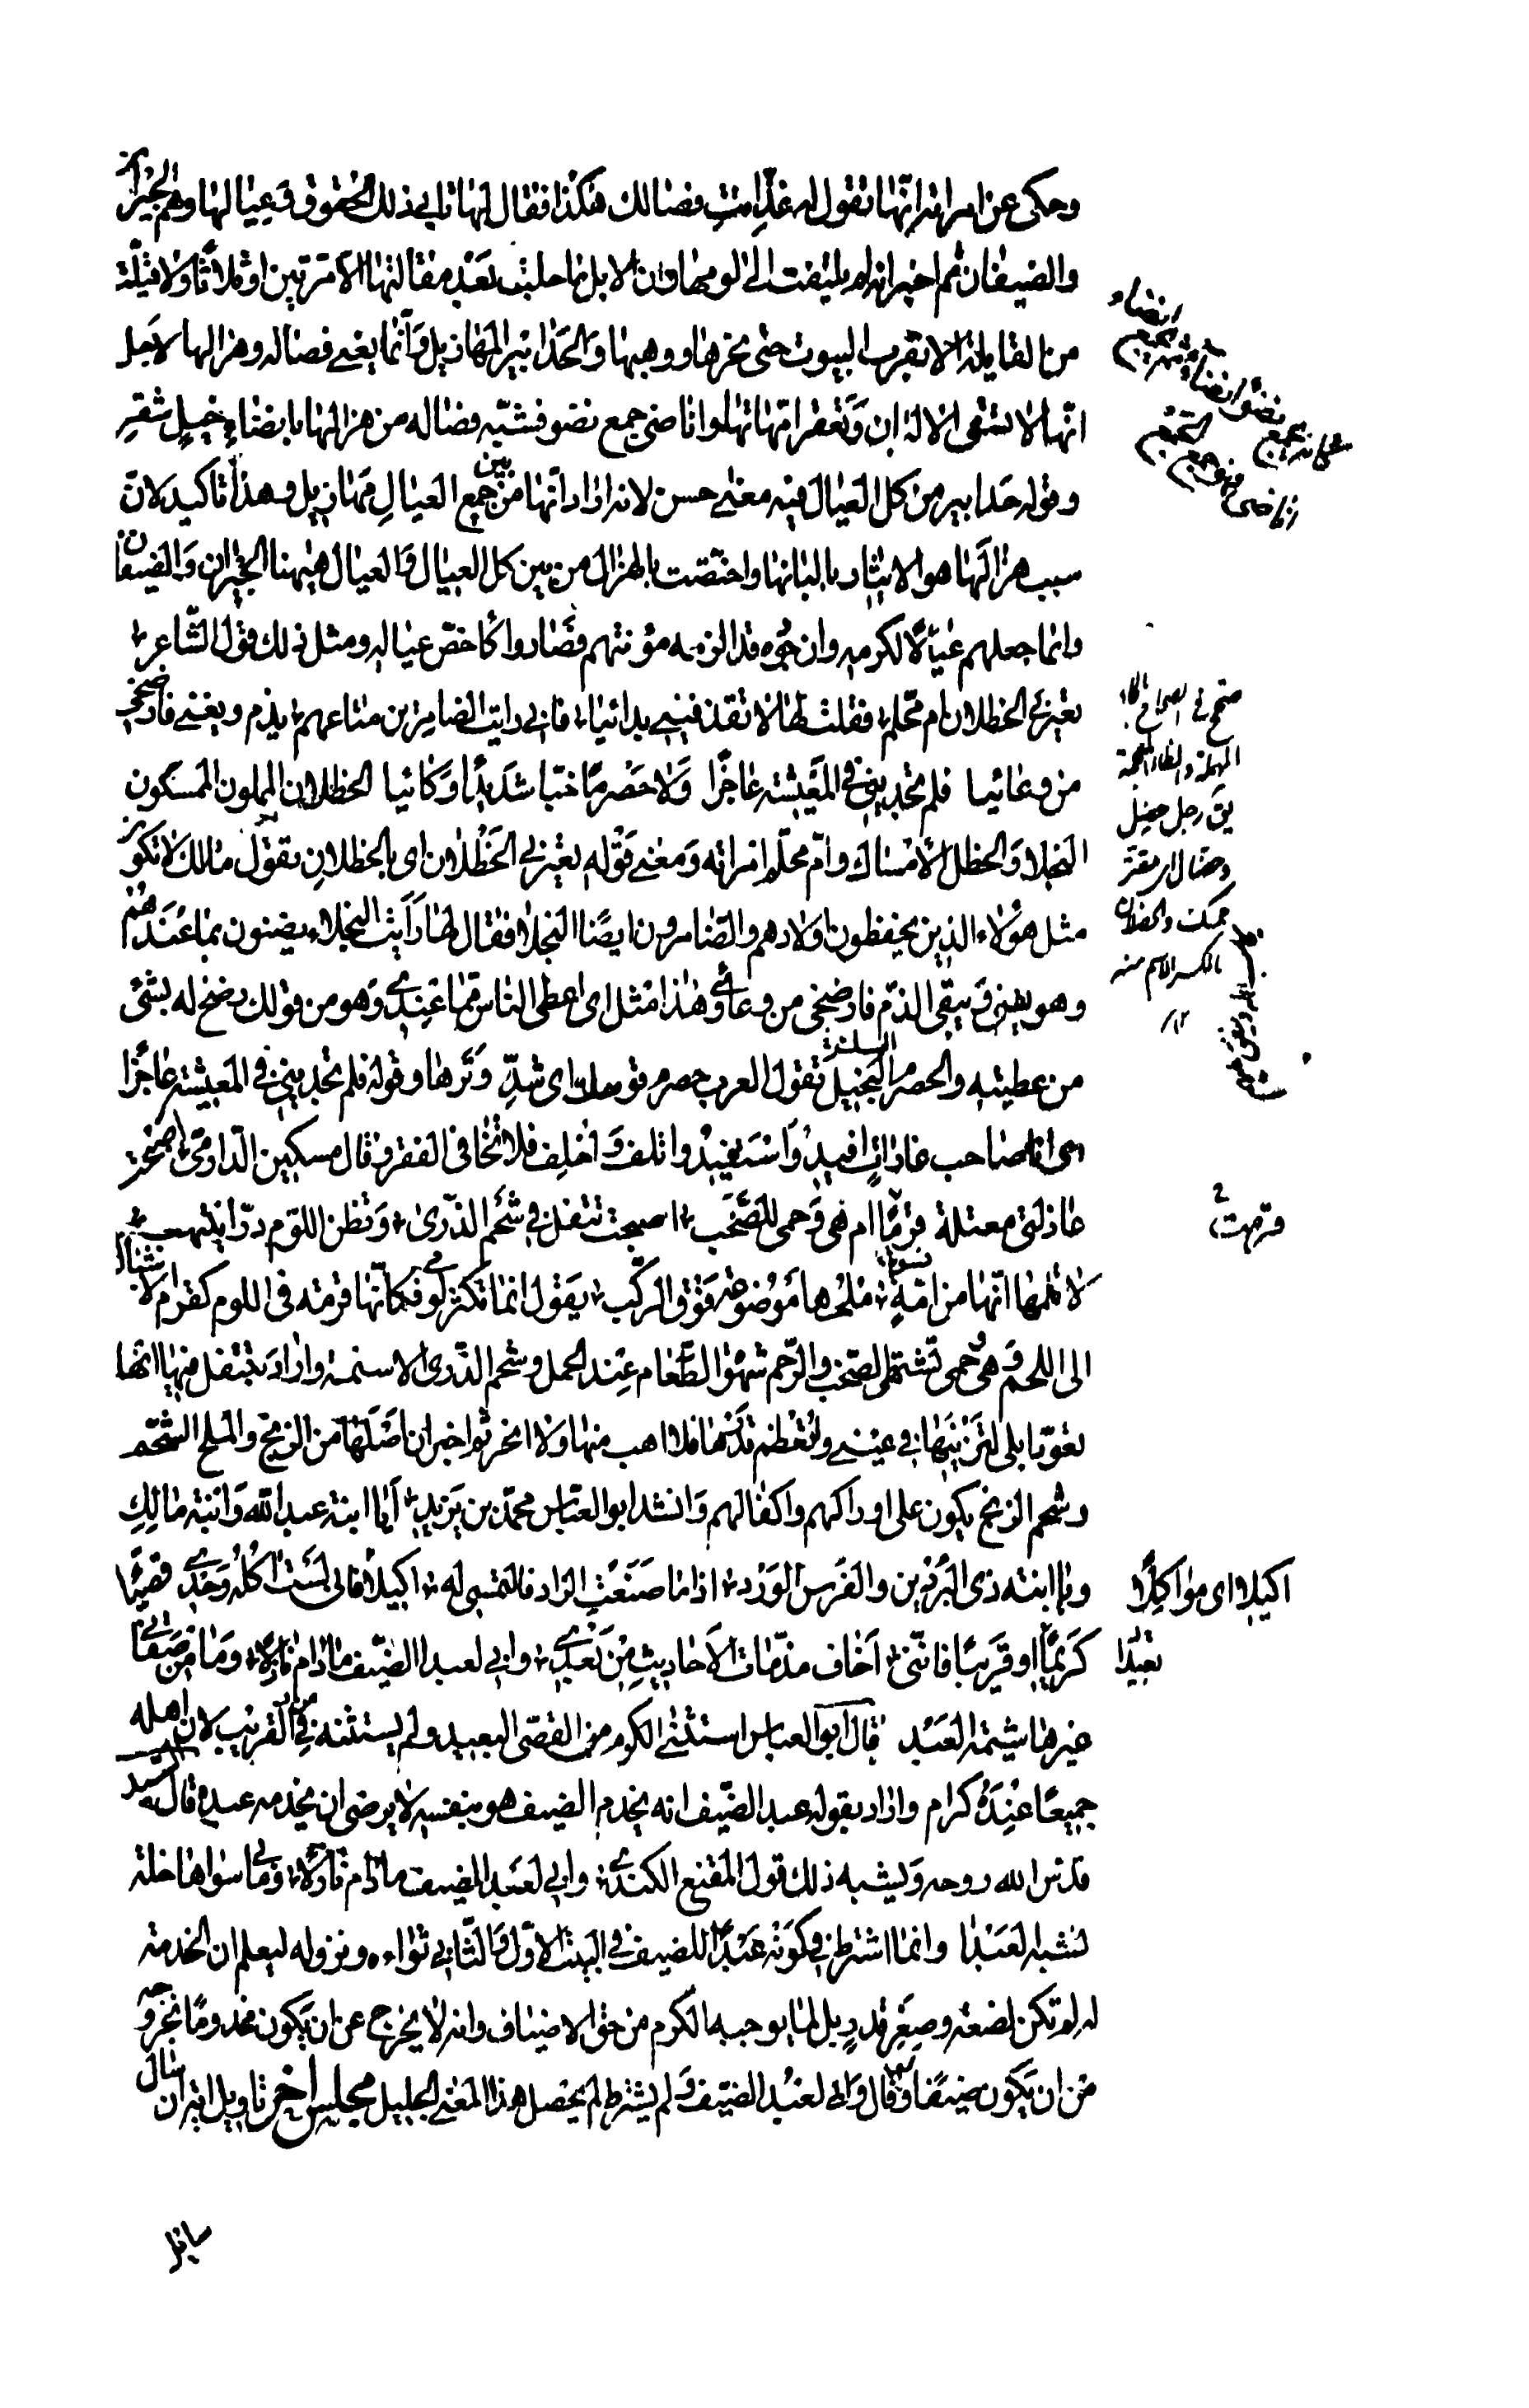 وحكى عن امراته انها تقول له غذامت فصالك هكذا فقال لها تابى ذلك الحقوق وعيالها وهم الجيران
والضيفان ثم اخبر انه لم يلتفت الى لومها وان الابل ما حلبت بعد مقالتها الا مرتين او ثلاثا ولا قيلت
من القايلة الا بقرب البيوت حتى نحرها ووهبها والحدابير المهازيل وانما يعنى فصاله وهزالها لاجل
انها لا تسقى الالبان وتعقر امهاتها وانا ضى جمع نضو فشبه فصاله من هزالها بانضاء خيل شقر
وقوله حدابير من كل العيال فيه معنى حسن لانه اراد انها من بين جميع العيال مهازيل وهذا تاكيد لان
سبب هزالها هو الايثار بالبانها واختصت بالهزال من بين كل العيال والعيال هيهنا الجيران والضيفان
وانما جعلهم عيالا لكرمه وان جوده قد الزمه مؤنتهم فصاروا كاخص عياله ومثل ذلك قول الشاعر
يعيرنى الحظلان ام محلم فقلت لها لا تقذفينى بدائيا فانى رايت الضامرين متاعهم يذم ويفنى فارضخى
من وعائيا فلم تجدينى فى المعيشة عاجزا ولا حصرما خبا شديدا وكائيا الحظلان المملون الممسكون
البخلا والحظل الامساك وام محلم امراته ومعنى قوله يعيرنى الحظلان اى بالحظلان يقول مالك لا تكون
مثل هؤلاء الذين يحفظون اولادهم والضامرون ايضا البخلا فقال لها رايت البخلاء يضنون بما عندهم
وهو يفنى ويبقى الذم فارضخى من وعائى وهذا مثل اى اعطى الناس مما عندى وهو من قولك رضخ له بشئ
من عطيته والحصرم البخيل تقول العرب حصرم قوسك اى شد وترها وقوله فلم تجدينى فى المعيشة عاجزا
اى انا صاحب غارات افيد واستفيد واتلف واخلف فلا تخافى الفقر وقال مسكين الدارمى اصبحت
عاذلتى معتلة قرما ام هى وحمى للصخب اصبحت تتفل فى شحم الذرى وتظن اللوم درا ينتهب
لا تلمها انها من امة ملحها موضوعة فوق الركب يقول انما تكثر لومى فكانها قرمت فى اللوم كقرم الانسان
الى اللحم وهى وحمى تشتهى الصخب والوحم شهوة الطعام عند الحمل وشحم الذرى الاسنمة واراد بتتفل فيها انها
تعوذ ابلى لتزينها فى عينى ولتعظم قدرها فلا اهب منها ولا انحر ثم اخبر ان اصلها من الزنج والملح الشحم
وشحم الزنج يكون على اوراكهم واكفالهم وانشد ابو العباس محمد بن يزيد ايا ابنة عبد الله وابنة مالك
ويا ابنة ذى البردين والفرس الورد اذا ما صنعت الزاد فالتمسى له اكيلا فانى لست اكله وحدى قصيا
كريما او قريبا فاننى اخاف مذمات الاحاديث من بعدى وانى لعبد الضيف ما دام نازلا وما من صفاتى
غيرها شيمة العبد قال ابو العباس استثنى الكرم من القصى البعيد ولم يستثنه فى القريب لان اهله
جميعا عنده كرام واراد بقوله عبد الضيف انه يخدم الضيف هو بنفسه لا يرضى ان يخدمه عبده قال السيد
قدس الله روحه ويشبه ذلك قول المقنع الكندى وانى لعبد الضيف ما دام نازلا وما بى سواها خلة
تشبه العبدا وانما اشترط فى كونه عبدا للضيف فى البيت الاول والثانى ثواءه ونزوله ليعلم ان الخدمة
له لم تكن لضعة وصغر قدر بل لما يوجبه الكرم من حق الاضياف وانه لا يخرج عن ان يكون مخدوما بخروجه
من ان يكون ضيفا ولو قال وانى لعبد الضيف ولم يشترط لم يحصل هذا المعنى الجليل مجلس اخر تاويل اية ان سال
سائل
انضاء
نضو
جمع
صح فى الصحاح
المهملة والظاء المعجمة
يق رجل حظل
وحظال اى مقتر
ممسك والحظلان
بالكسر الاسم منه
١٢
قرمت
اكيلا اى مواكلا
بعيدا